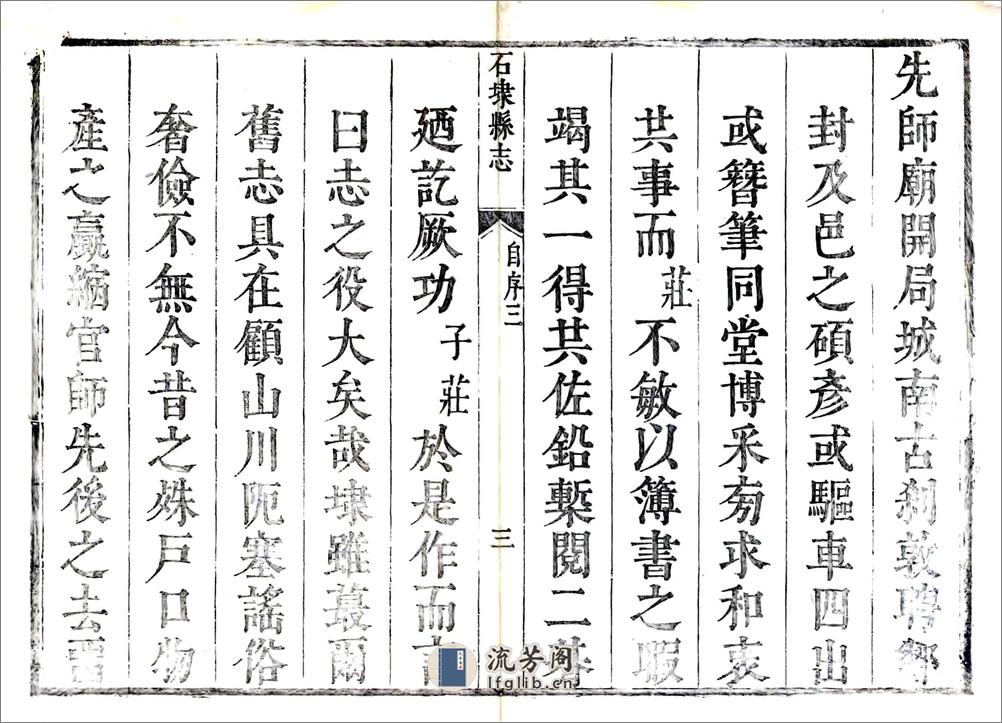 先師廟開局城南古剎敦聘鄰
封及邑之碩彥或驅車四出
或簪筆同堂博采旁求和衷
共事而莊不敏以簿書之暇
竭其一得共佐鉛槧閱二
石埭縣志
自序三
三
廼訖厥功子莊於是作而
曰志之役大矣哉埭雖蕞爾
舊志具在顧山川阨塞謠俗
奢儉不無今昔之殊戶口物
產之贏縮官師先後之去
流芳阁
lfglib.cn